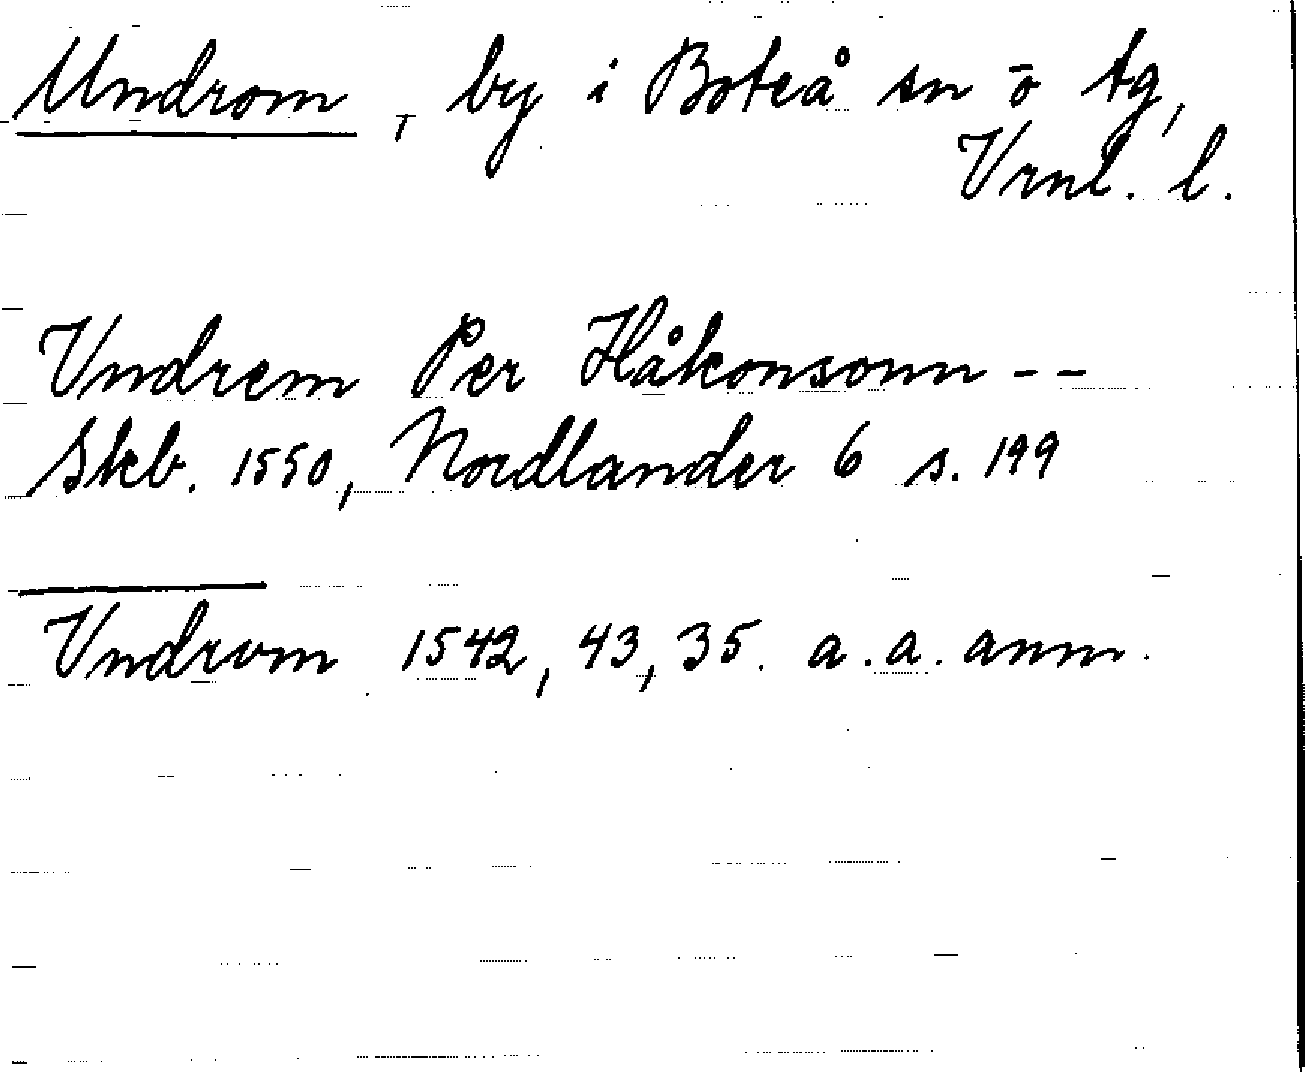 Undrom, by i Boteå sn ö tg,
Vrnl. l.
Vndrem Per Håkonsonn --
Skb. 1550, Nordlander 6 s. 199
Vndrom 1542, 43, 35. a.a. anm.